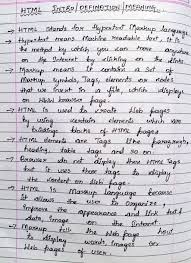 HTML INTRO/DEFINITION/MEANING
→ HTML Stands for Hypertext Markup language
→ Hypertext means Machine readable text, it is
the method by which you can move anywhere
on the Internet by clicking on the links
→ Markup means it contains a set of
Markup Symbols, Tags, elements or codes
that we insert in a file, which display
on Web browser page.
→ HTML is used to create Web pages
by using certain elements which are
building blocks of HTML pages
→ HTML elements are Tags like paragraphs,
headings, table tags and so on
→ Browser do not display these HTML Tags
but it uses these tags to display
the content on Web page.
→ HTML is Markup language because
it allows the user to organize,
improve the appearance and link text
data, image on the Internet
→ Markup tell the Web how
to display words, images on
Web pages of user.